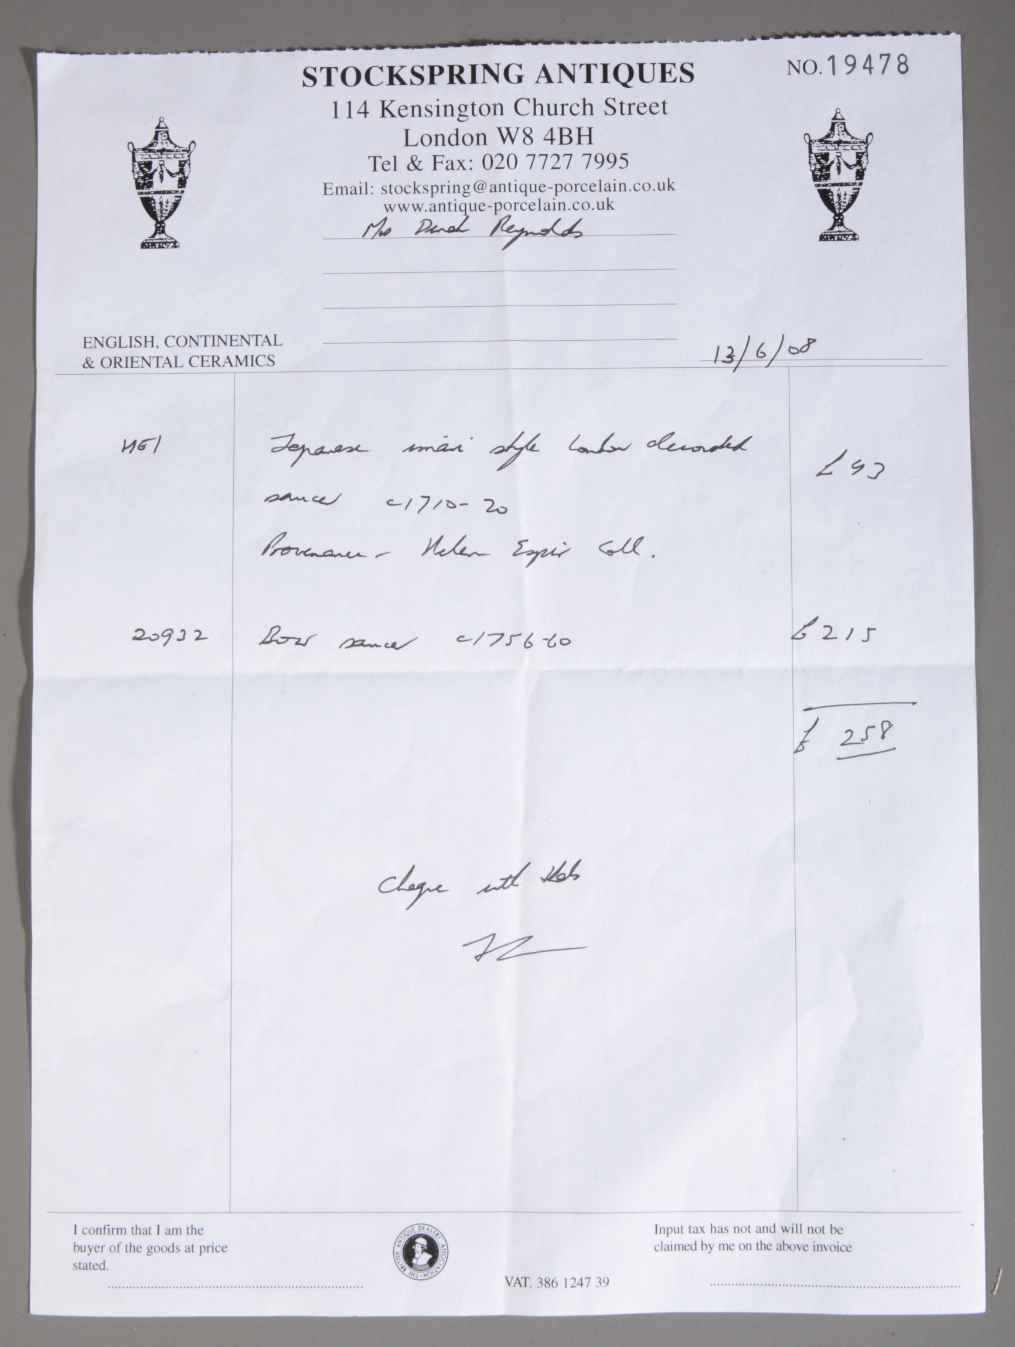 STOCKSPRING ANTIQUES
NO. 19478
114 Kensington Church Street
London W8 4BH
Tel & Fax: 020 7727 7995
Email: stockspring@antique-porcelain.co.uk
www.antique-porcelain.co.uk
Reynolds
ENGLISH, CONTINENTAL
& ORIENTAL CERAMICS
13/6/08
HE1 Japanese imari style London decorated
saucer c1710-20
£43
Provenance - Helen Espir Coll.
20932 Bow saucer c1756-60 £215
£ 258
Cheque with
I confirm that I am the
buyer of the goods at price
stated.
THE BRITISH ANTIQUE DEALERS' ASSOCIATION
VAT. 386 1247 39
Input tax has not and will not be
claimed by me on the above invoice